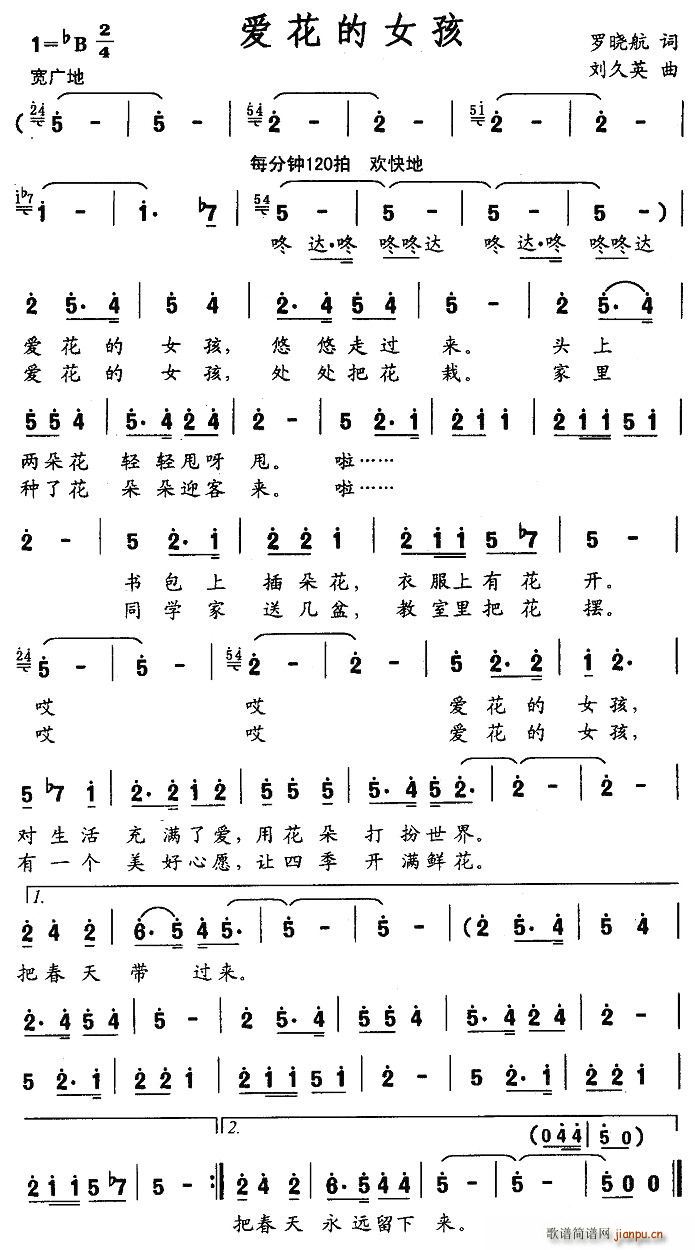 爱花的女孩
1=♭B 2/4
罗晓航 词
宽广地
刘久英 曲
每分钟120拍 欢快地
咚 达·咚 咚咚达 咚 达·咚 咚咚达
爱花的 女孩, 悠悠走过 来。 头上
爱花的 女孩, 处处把花 栽。 家里
两朵花 轻轻甩呀 甩。 啦……
种了花 朵朵迎客 来。 啦……
书包上 插朵花, 衣服上有花 开。
同学家 送几盆, 教室里把花 摆。
哎 哎 爱花的 女孩,
哎 哎 爱花的 女孩,
对生活 充满了爱, 用花朵 打扮世界。
有一个 美好心愿, 让四季 开满鲜花。
1.
把春天 带 过来。
2.
把春天 永远留下 来。
歌谱简谱网
jianpu.cn